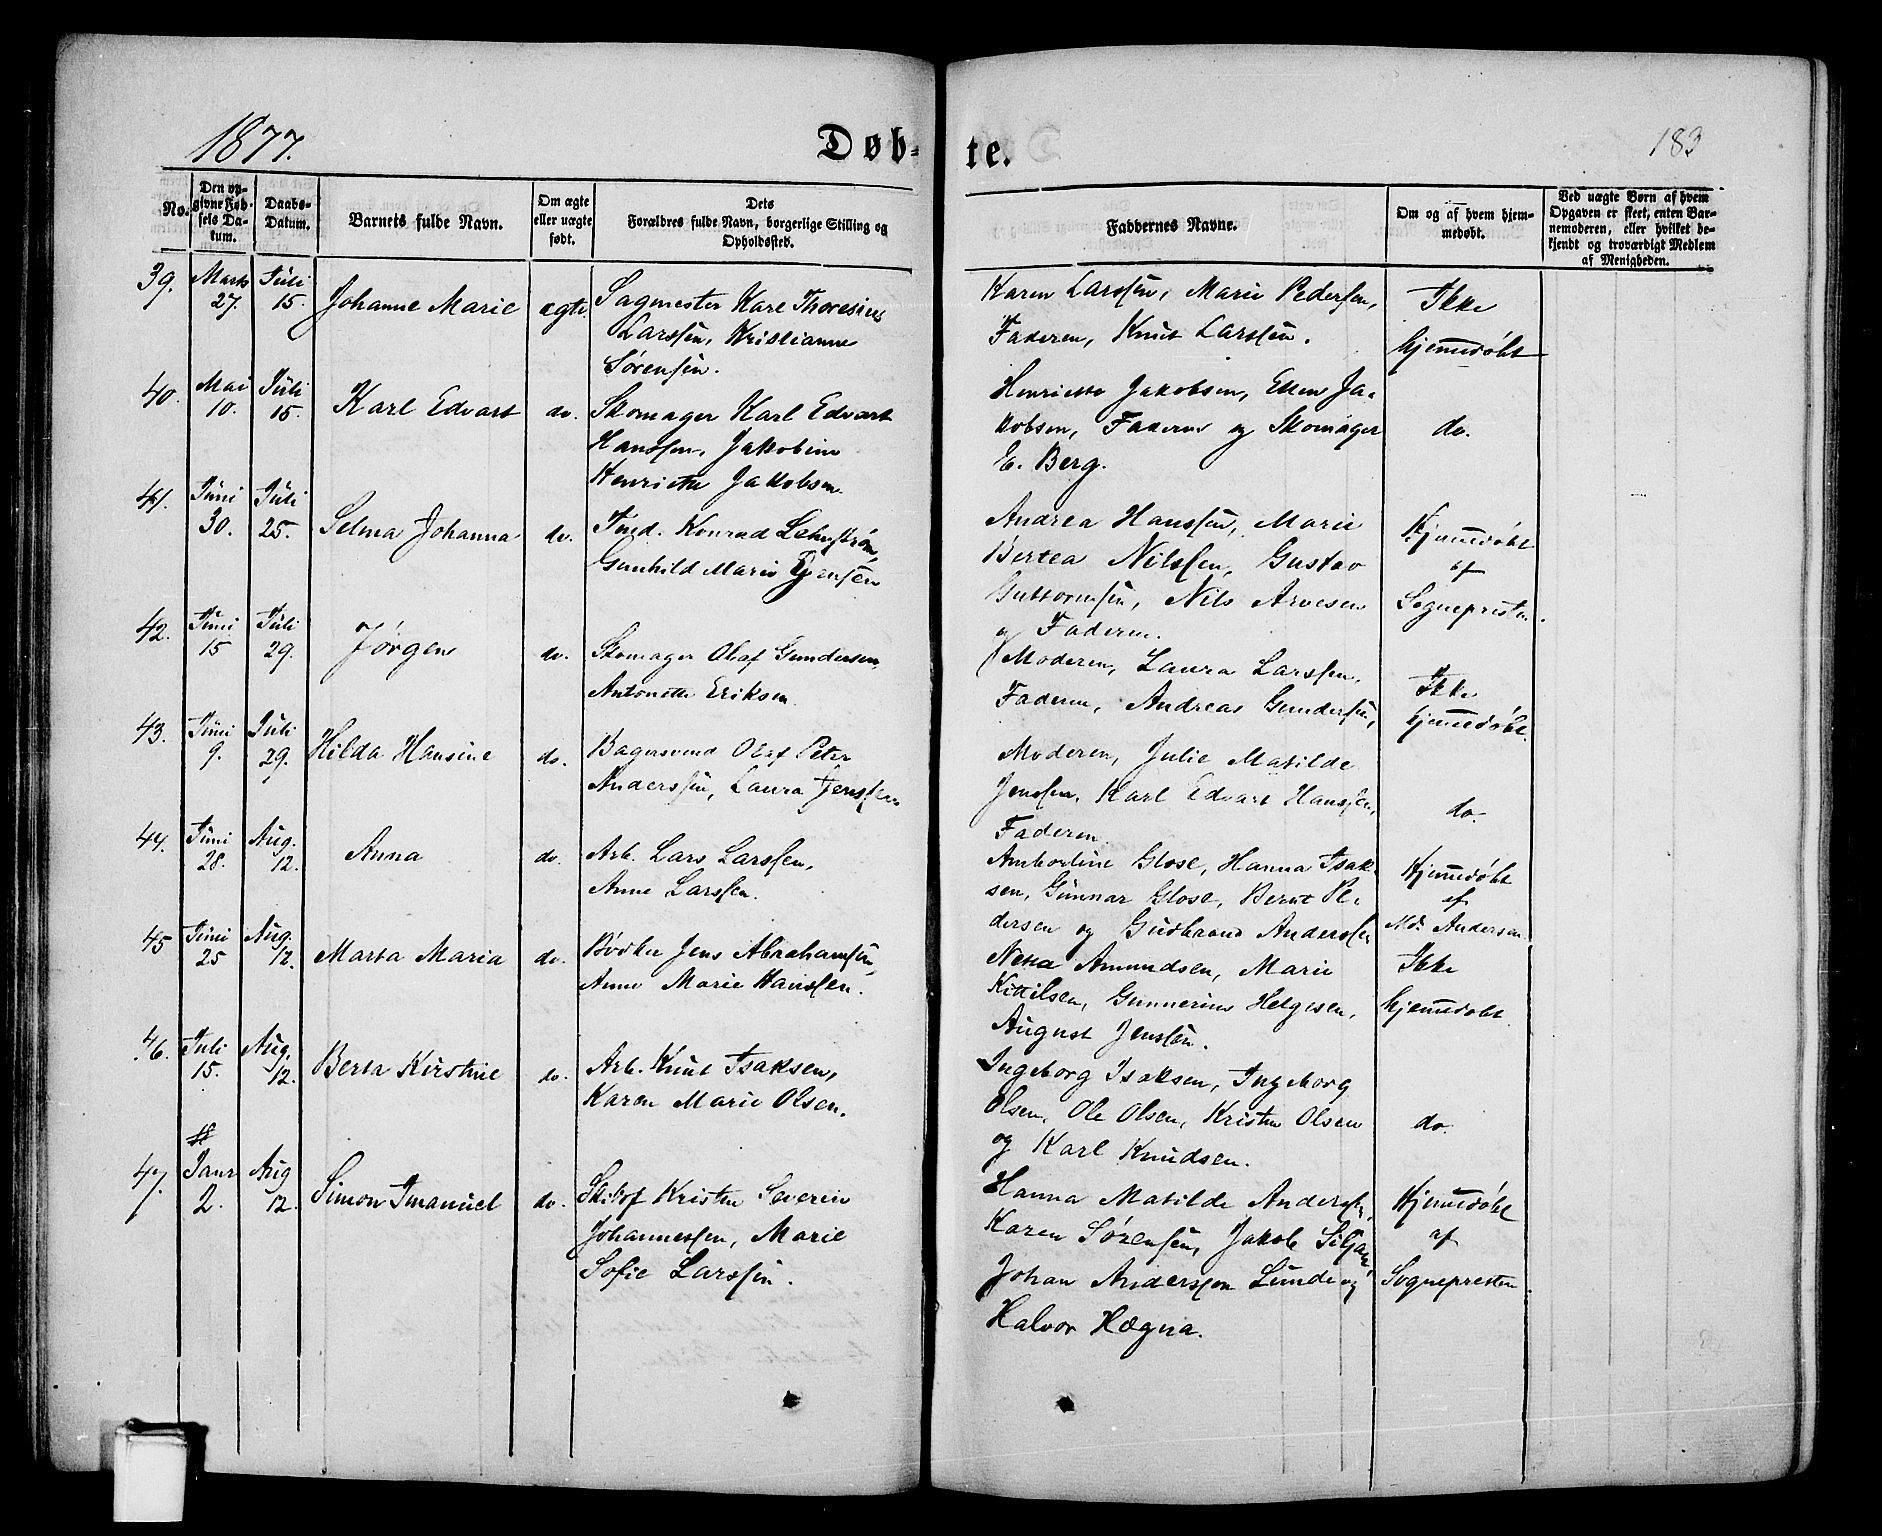 1877.
Døb-
te.
183
No.
Den op-
givne Fød-
sels Da-
tum.
Daabs-
Datum.
Barnets fulde Navn.
Om ægte
eller uægte
født.
Dets
Forældres fulde Navn, borgerlige Stilling og
Opholdssted.
Faddernes Navne.
Om og af hvem hjem-
medøbt.
Ved uægte Børn af hvem
Opgaven er skeet, enten Bar-
nemoderen, eller hvilket be-
kjendt og troværdigt Medlem
af Menigheden.
39.
Marts
27.
Juli
15.
Johanne Marie
ægte
Sagmester Karl Thoresius
Larssen, Kristianne
Sørensen.
Karen Larssen, Marie Pedersen,
Faderen, Knut Larssen.
Ikke
hjemmedøbt
40.
Mai
10.
Juli
15.
Karl Edvart
do.
Skomager Karl Edvart
Hanssen, Jakobine
Henriette Jakobsen
Henriette Jakobsen, Ellen Ja-
kobsen, Faderen og Skomager
E. Berg.
do.
41.
Juni
30.
Juli
25.
Selma Johanna
do.
Konrad Lehnstrøm,
Gunhild Marie
Andrea Hanssen, Marie
Bertea Nilssen, Gustav
Guttormsen, Nils Arvesen
og Faderen.
Hjemmedøbt
af
Sognepresten.
42.
Juni
15
Juli
29.
Jørgen
do.
Skomager Olaf Gundersen,
Antonette Eriksen.
Moderen, Laura Larssen,
Faderen, Andreas Gundersen,
Ikke
hjemmedøbt.
43.
Juni
9.
Juli
29.
Hilda Hansine
do.
Bagersvend Olaf Peter
Anderssen, Laura Jenssen
Moderen, Julie Matilde
Jenssen, Karl Edvart Hanssen,
Faderen.
do.
44.
Juni
28.
Aug.
12.
Anna
do.
Arb. Lars Larssen,
Anne Larssen.
Ambortine Glose, Hanna Isak-
sen, Gunnar Glose, Bernt Pe-
dersen og Gudbrand Anderssen
Hjemmedøbt
af
Md. Andersen
45
Juni
25
Aug.
12.
Marta Maria
do.
Bødker Jens Abrahamsen,
Anne Marie Hanssen.
Netta Amundsen, Marie
Kittilsen, Gunnerius Helgesen,
August Jensen.
Ikke
hjemmedøbt.
46.
Juli
15.
Aug.
12.
Berta Kirstine
do.
Arb. Knut Isaksen,
Karen Marie Olsen.
Ingeborg Isaksen, Ingeborg
Olsen, Ole Olsen, Kristen Olsen
og Karl Knudsen.
do.
47.
Janr
2.
Aug
12.
Simon Imanuel
do.
Skibsf Kristen Severin
Johannessen, Marie
Sofie Larssen.
Hanna Matilde Anderssen,
Karen Sørensen, Jakob Siljan,
Johan Anderssen Lunde og
Halvor Hægna.
Hjemmedøbt
af
Sognepresten